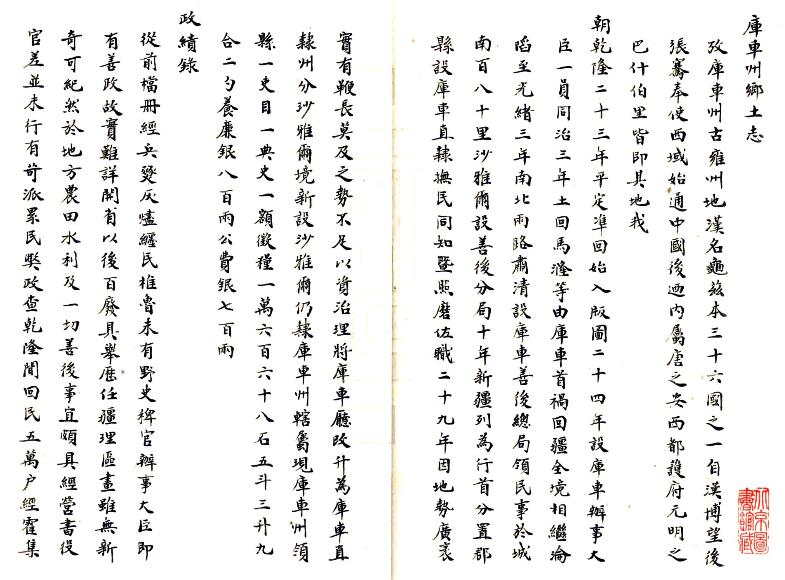 庫車州鄉土志
攷庫車州古雍州地漢名龜玆本三十六國之一自漢博望後
張騫奉使西域始通中國後迺内屬唐之安西都護府元明之
巴什伯里皆即其地我
朝乾隆二十三年平定準回始入版圖二十四年設庫車辦事大
臣一員同治三年土回馬漋等由庫車首禍回疆全境相繼淪
陷至光緒三年南北兩路肅清設庫車善後總局領民事於城
南百八十里沙雅爾設善後分局十年新疆列為行首分置郡
縣設庫車直隸撫民同知暨照磨佐職二十九年因地勢廣袤
實有鞭長莫及之勢不足以資治理將庫車廳改升為庫車直
隸州分沙雅爾境新設沙雅爾仍隸庫車州轄屬現庫車州領
縣一吏目一典史一額徵糧一萬六百六十八石五斗三升九
合二勺養廉銀八百兩公費銀七百兩
政績錄
從前檔冊經兵燹灰燼纏民椎魯未有野史稗官辦事大臣即
有善政故實難詳開省以後百廢具舉歷任疆理區畫雖無新
奇可紀然於地方農田水利及一切善後事宜頗具經營書役
官差並未行有苛派累民獘政查乾隆間回民五萬户經霍集
北京圖
書館藏